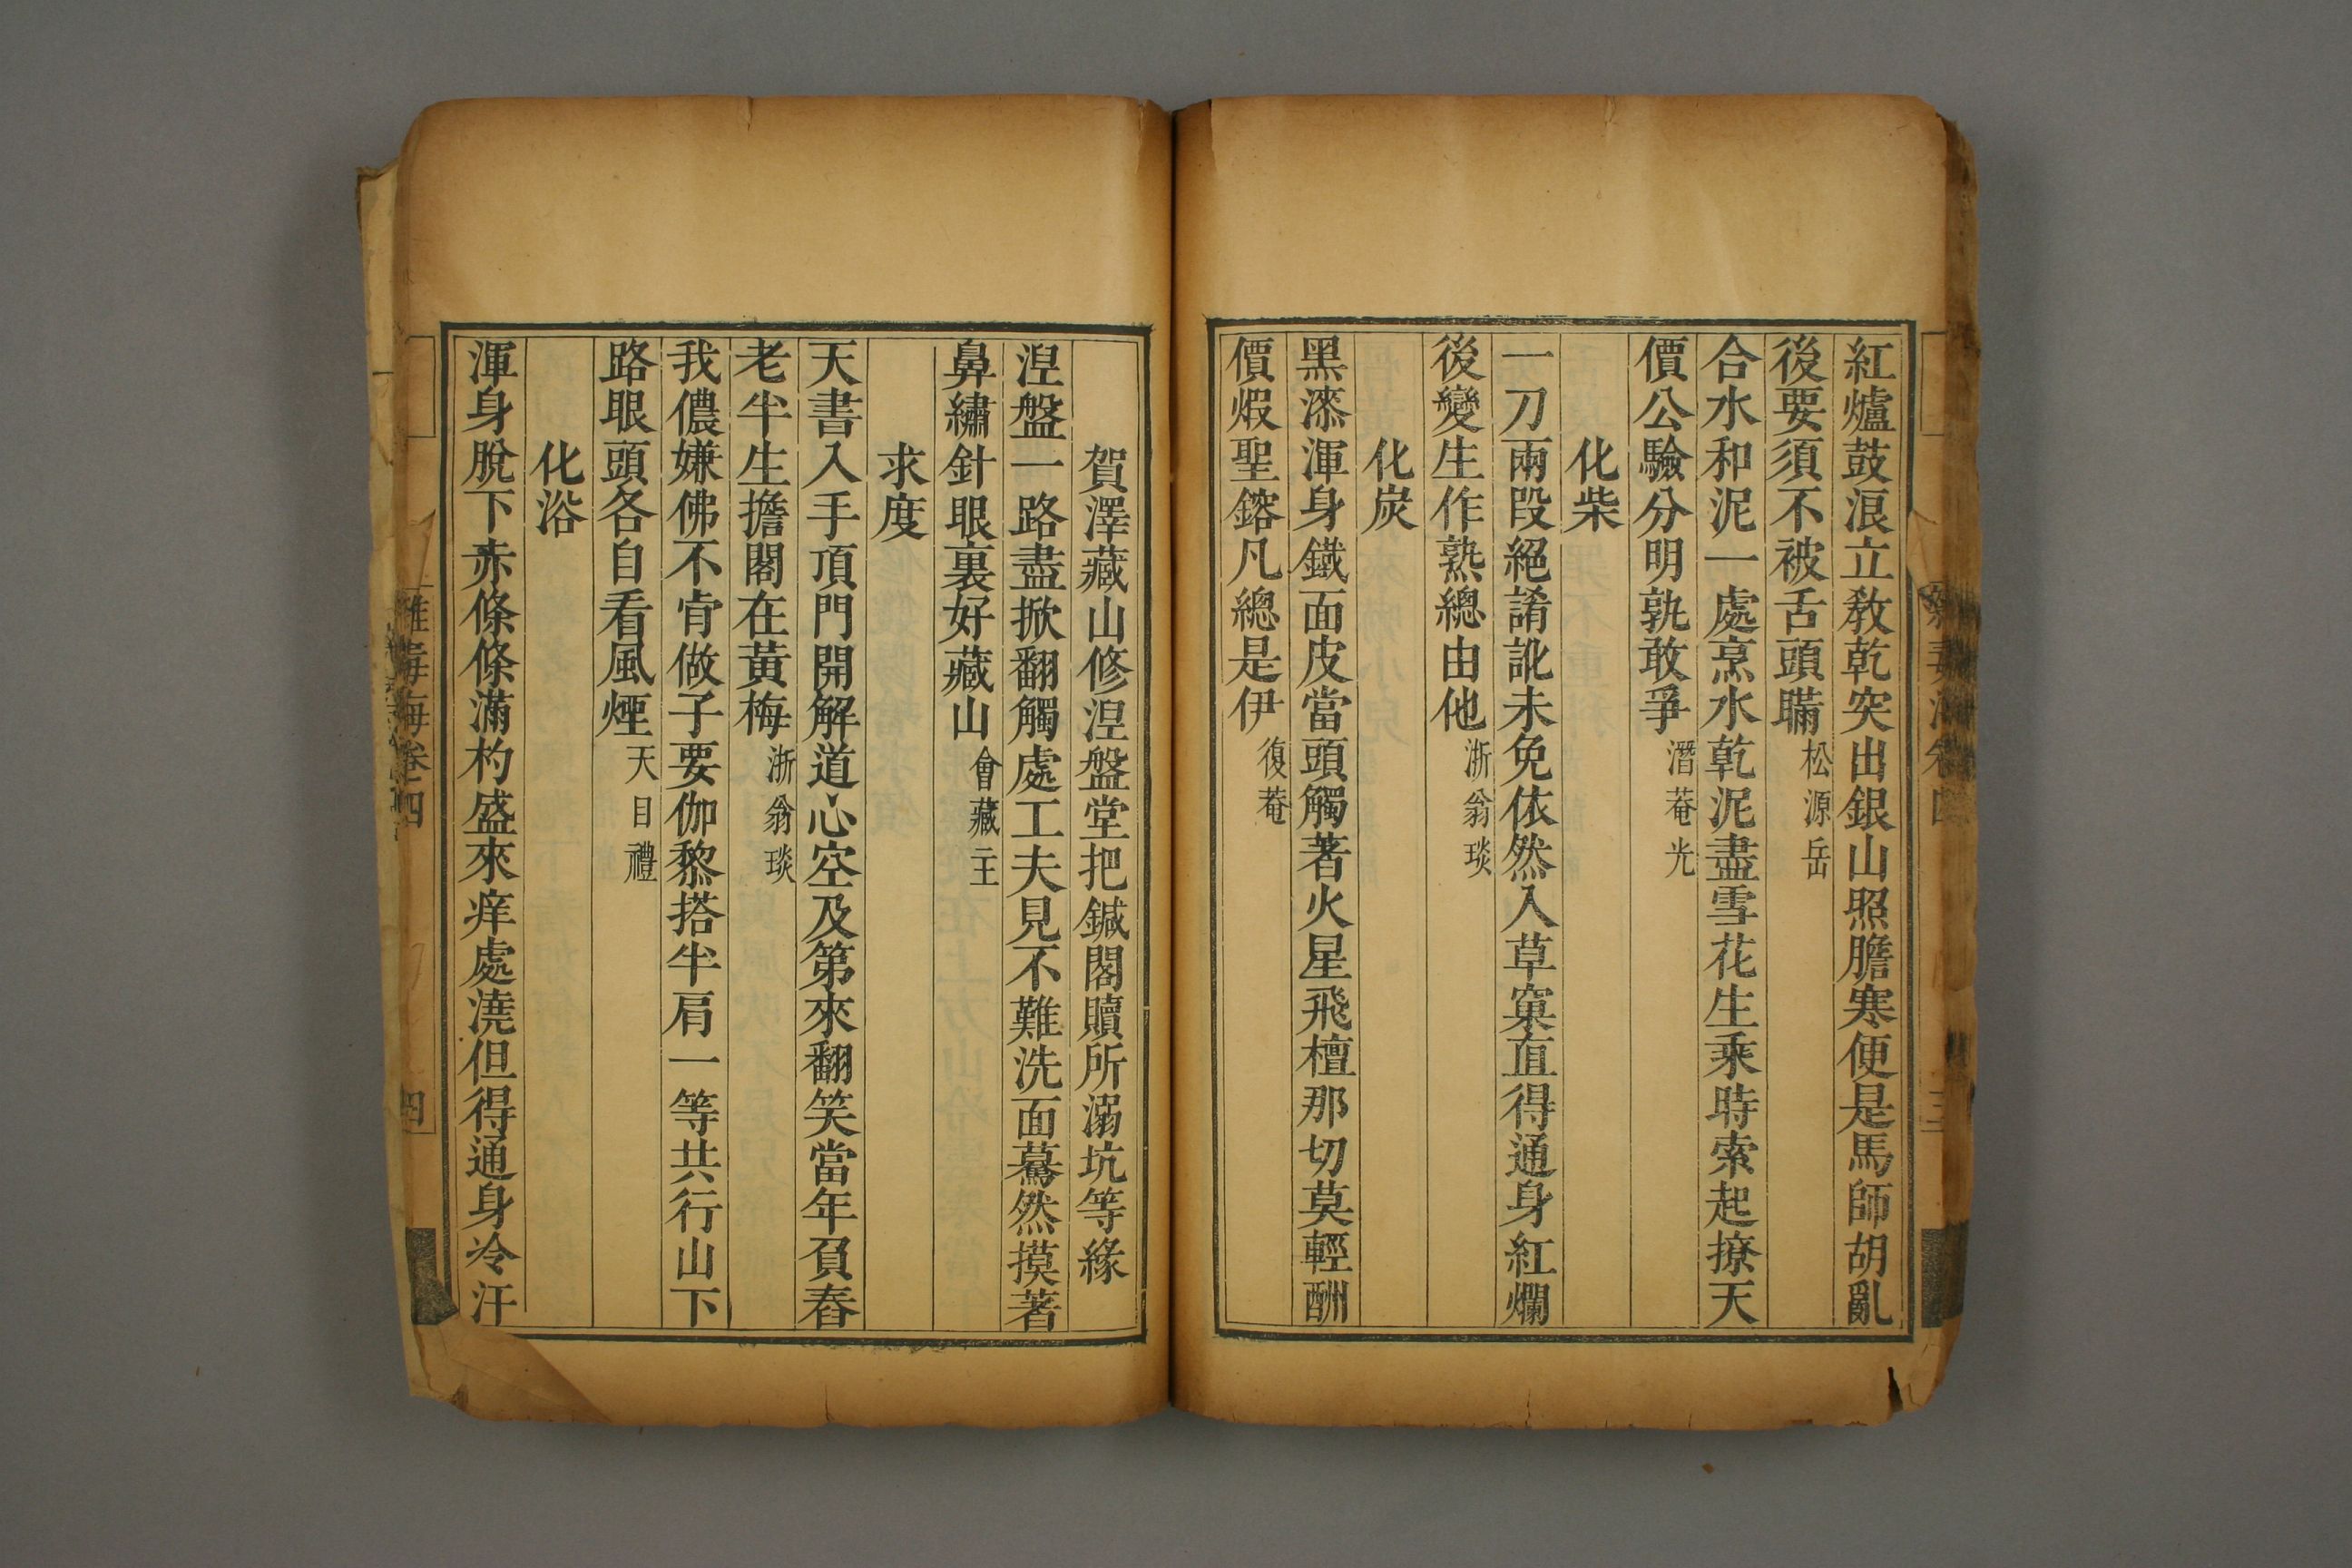 紅爐鼓浪立教乾突出銀山照膽寒便是馬師胡亂
後要須不被舌頭瞞松源岳
合水和泥一處烹水乾泥盡雪花生乘時索起撩天
價公驗分明孰敢爭潛菴光
化柴
一刀兩段絕誵訛未免依然入草窠直得通身紅爛
後變生作熟總由他浙翁琰
化炭
黑漆渾身鐵面皮當頭觸著火星飛檀那切莫輕酬
價煆聖鎔凡總是伊復菴
賀澤藏山修涅盤堂把鍼閣贖所溺坑等緣
涅盤一路盡掀翻觸處工夫見不難洗面驀然摸著
鼻繡針眼裏好藏山會藏主
求度
天書入手頂門開解道心空及第來翻笑當年負舂
老半生擔閣在黃梅浙翁琰
我儂嫌佛不肯做子要伽黎搭半肩一等共行山下
路眼頭各自看風煙天目禮
化浴
渾身脫下赤條條滿杓盛來痒處澆但得通身冷汗
海卷四
四